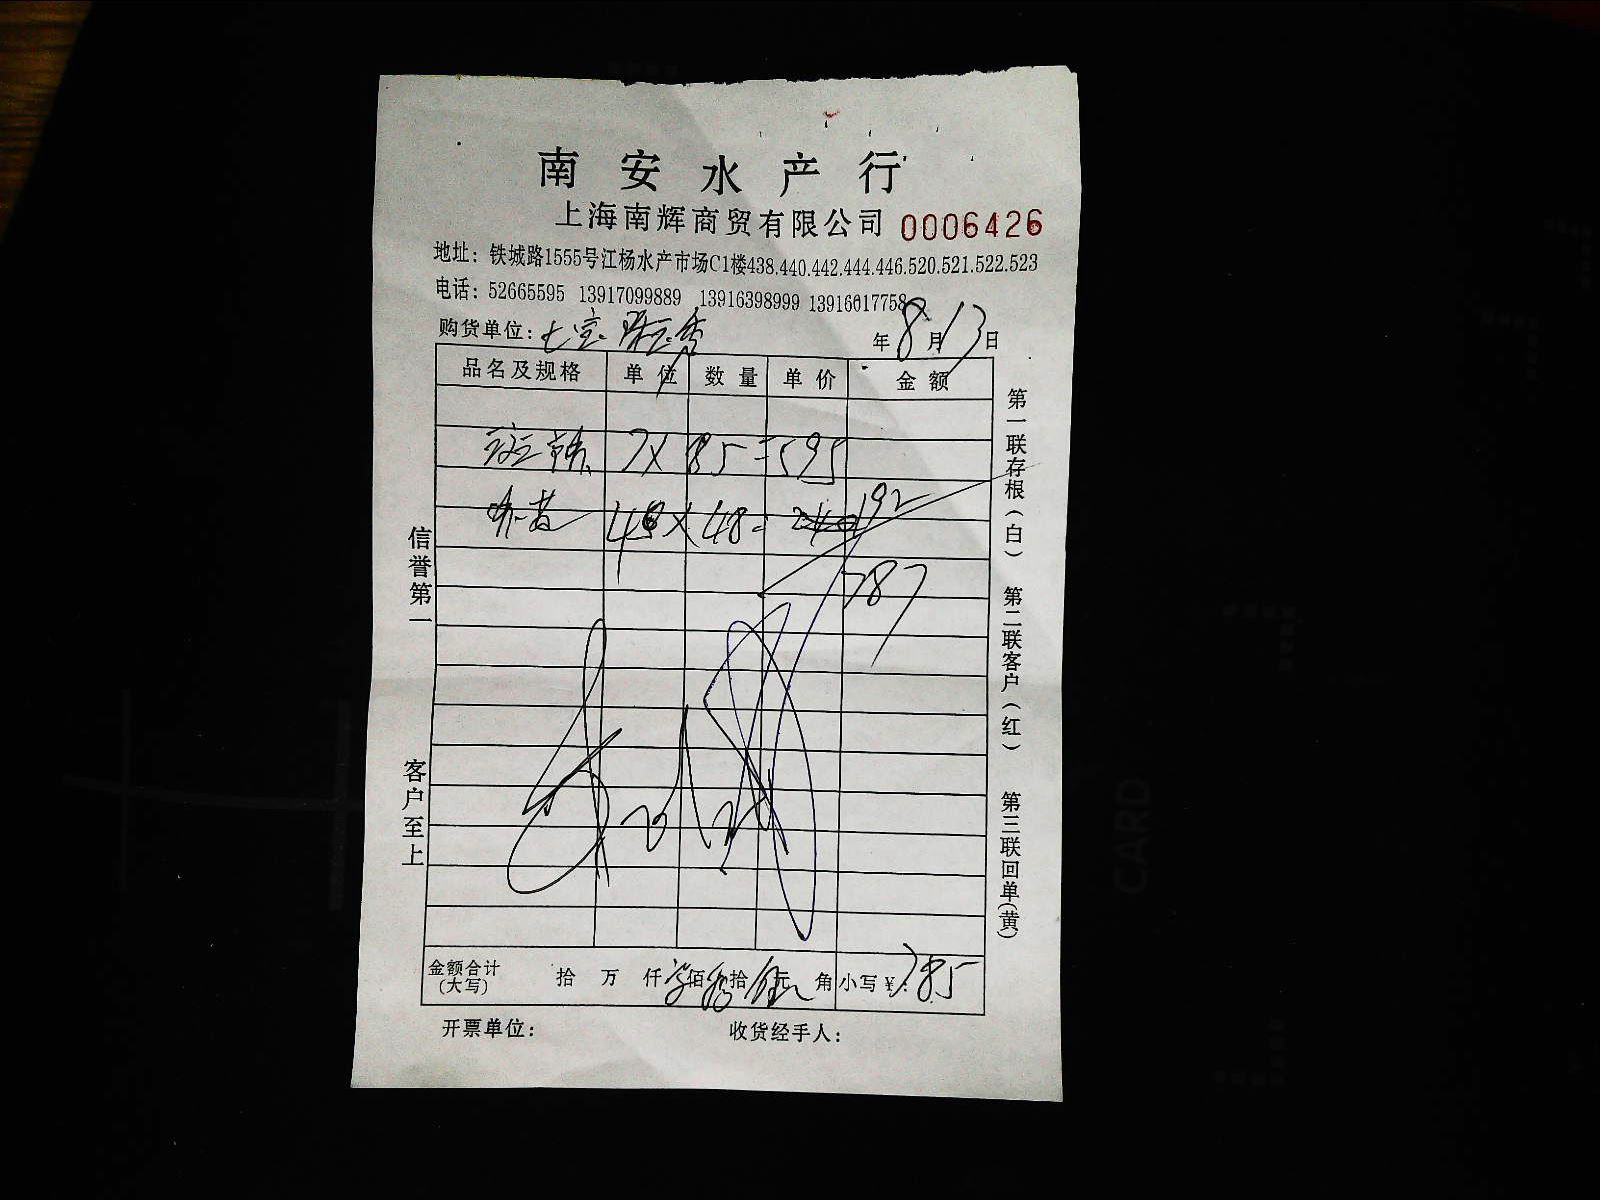 南安水产行
上海南辉商贸有限公司 0006426
地址：铁城路1555号江杨水产市场C1楼438.440.442.444.446.520.521.522.523
电话：52665595 13917099889 13916398999 13916017758
购货单位：七宝 年8月13日
品名及规格 单位 数量 单价 金额
7X 85=595
4 X 48= 192
787
信誉第一
客户至上
第一联存根（白） 第二联客户（红） 第三联回单(黄)
金额合计 拾 万 仟 佰 拾 元 角 小写￥：785
(大写)
开票单位： 收货经手人：